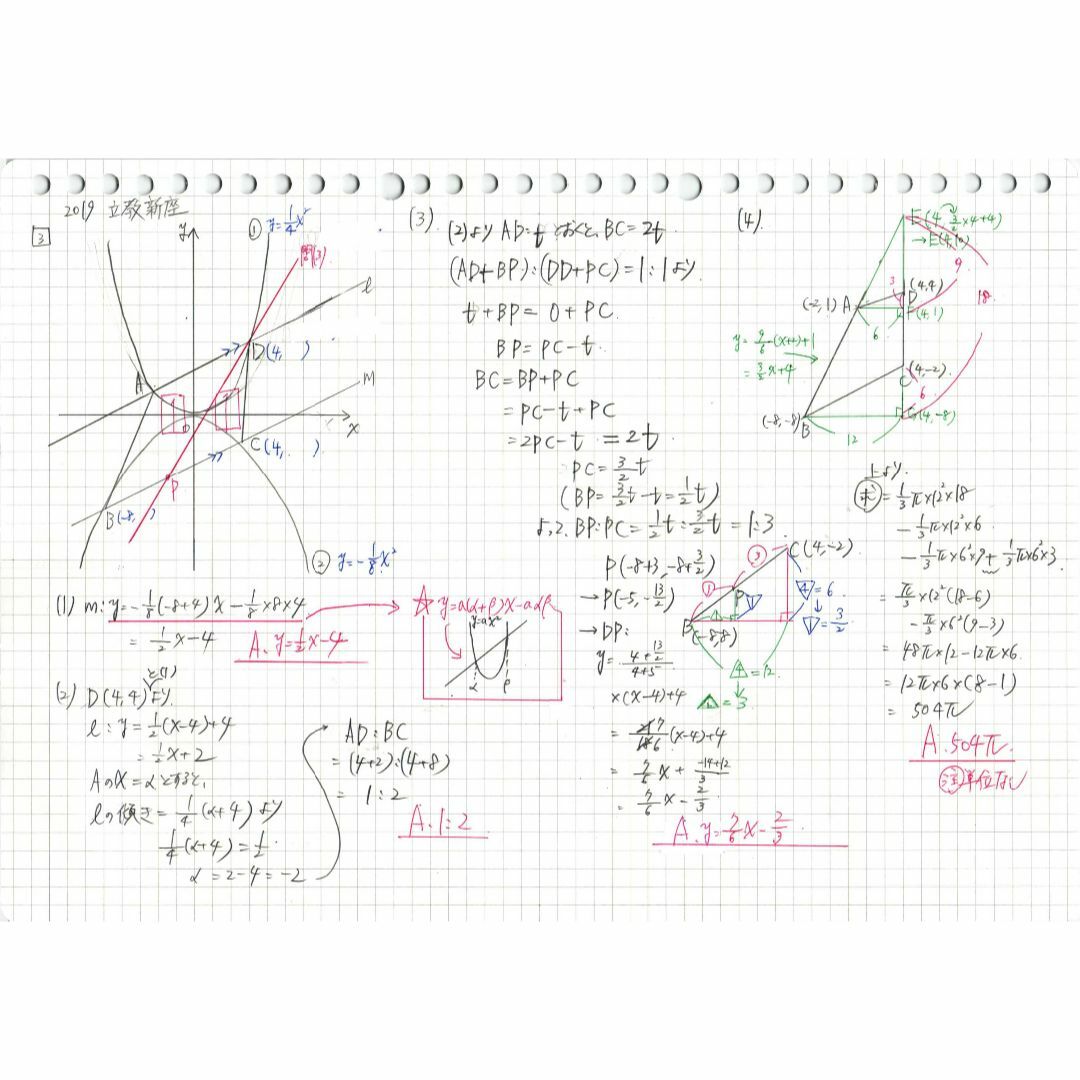 2019 立教新座
3
y
① y=1/4x²
(3)
l
D(4, )
m
A
x
C(4, )
P
B(-8, )
② y=-1/8x²
(1) m: y=-1/8(-8+4)x-1/8×8×4
=1/2x-4
A. y=1/2x-4
☆ y=a(α+β)x-aαβ
y=ax²
α β
と(1)
(2) D(4,4)より
l: y=1/2(x-4)+4
=1/2x+2
Aのx=αとすると、
lの傾き=1/4(α+4)より
1/4(α+4)=1/2
α=2-4=-2
AD:BC
=(4+2):(4+8)
=1:2
A. 1:2
(3)
(2)より AD=tとおくと、BC=2t
(AD+BP):(DD+PC)=1:1より
t+BP=0+PC
BP=PC-t
BC=BP+PC
=PC-t+PC
=2PC-t=2t
PC=3/2t
(BP=3/2t-t=1/2t)
よって、BP:PC=1/2t:3/2t=1:3
P(-8+3, -8+3/2)
→P(-5, -13/2)
→DP:
y=(4+13/2)/(4+5)
×(x-4)+4
=21/18 7/6(x-4)+4
=7/6x+(-14+12)/3
=7/6x-2/3
A. y=7/6x-2/3
③ C(4,-2)
① P
4=6
1=3/2
B(-8,8)
4=12
1=3
(4)
E(4, 3/2×4+4)
→E(4,10)
9
18
3
(4,4)
D
(-2,1) A
F(4,1)
6
y=9/6(x+2)+1
=3/2x+4
(4,-2)
C
6
G(4,-8)
(-8,-8) B
12
上より
求=1/3π×12²×18
-1/3π×12²×6
-1/3π×6²×9+1/3π×6²×3
=π/3×12²(18-6)
-π/3×6²(9-3)
=48π×12-12π×6
=12π×6×(8-1)
=504π
A. 504π
注単位なし